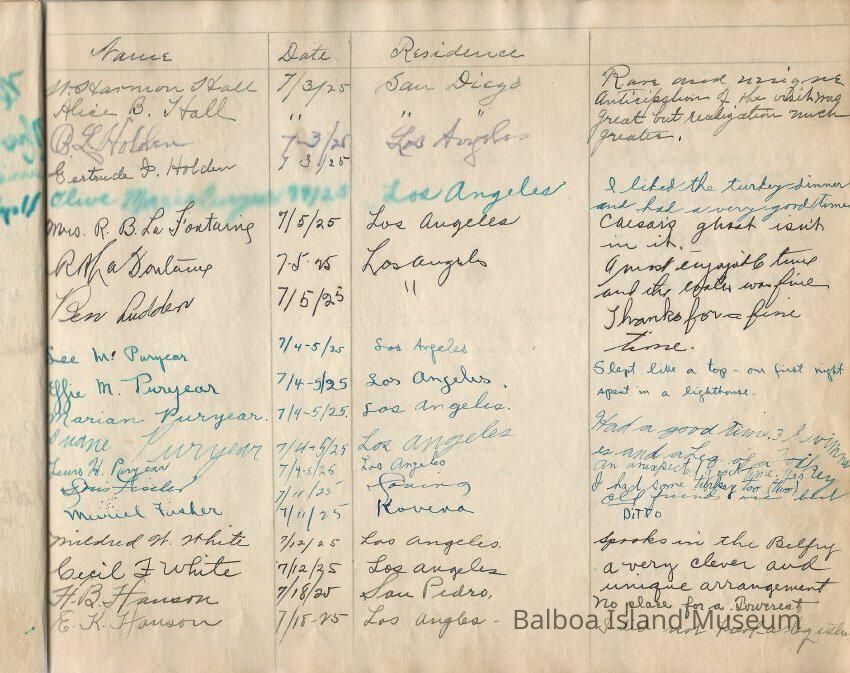 Name Date Residence
W. Harmon Hall 7/3/25 San Diego Rare and unique
Alice B. Hall " " " Anticipation of the visit was
great but realization much
B L Holden 7-3/25 Los Angeles greater.
Gertrude F. Holden 7 3/25
Olive Marie Puryear 7/4/25 Los Angeles I liked the turkey dinner
and had a very good time
Mrs. R. B. La Fontaine 7/5/25 Los Angeles Caesar's ghost isn't
in it.
R B La Fontaine 7-5-25 Los Angeles A most enjoyable time
and the water was fine
Ben Ludden 7/5/25 " Thanks for a fine
time.
Lee Mc Puryear 7/4-5/25 Los Angeles Slept like a top - our first night
spent in a lighthouse.
Effie M. Puryear 7/4-5/25 Los Angeles.
Marian Puryear. 7/4-5/25. Los Angeles.
Duane Puryear 7/4-5/25 Los Angeles Had a good time. 3 swimm
es and a Leg of a Turkey
Lewis H. Puryear 7/4-5/25 Los Angeles An unexpected
I had some turkey too (two)
7/11/25 old friend
Muriel 7/11/25 Kovena Ditto
Mildred W. White 7/12/25 Los Angeles. Spooks in the Belfry
Cecil F White 7/12/25 Los Angeles a very clever and
unique arrangement
H. B. Hanson 7/18/25 San Pedro, No place for a
E. K. Hanson 7/18-25 Los Angles - not
Balboa Island Museum